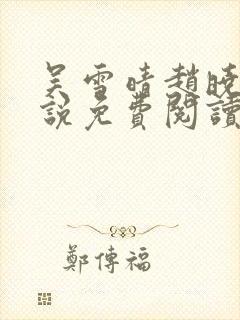 吴雪晴趙曉
說免費閱讀
鄭傳福